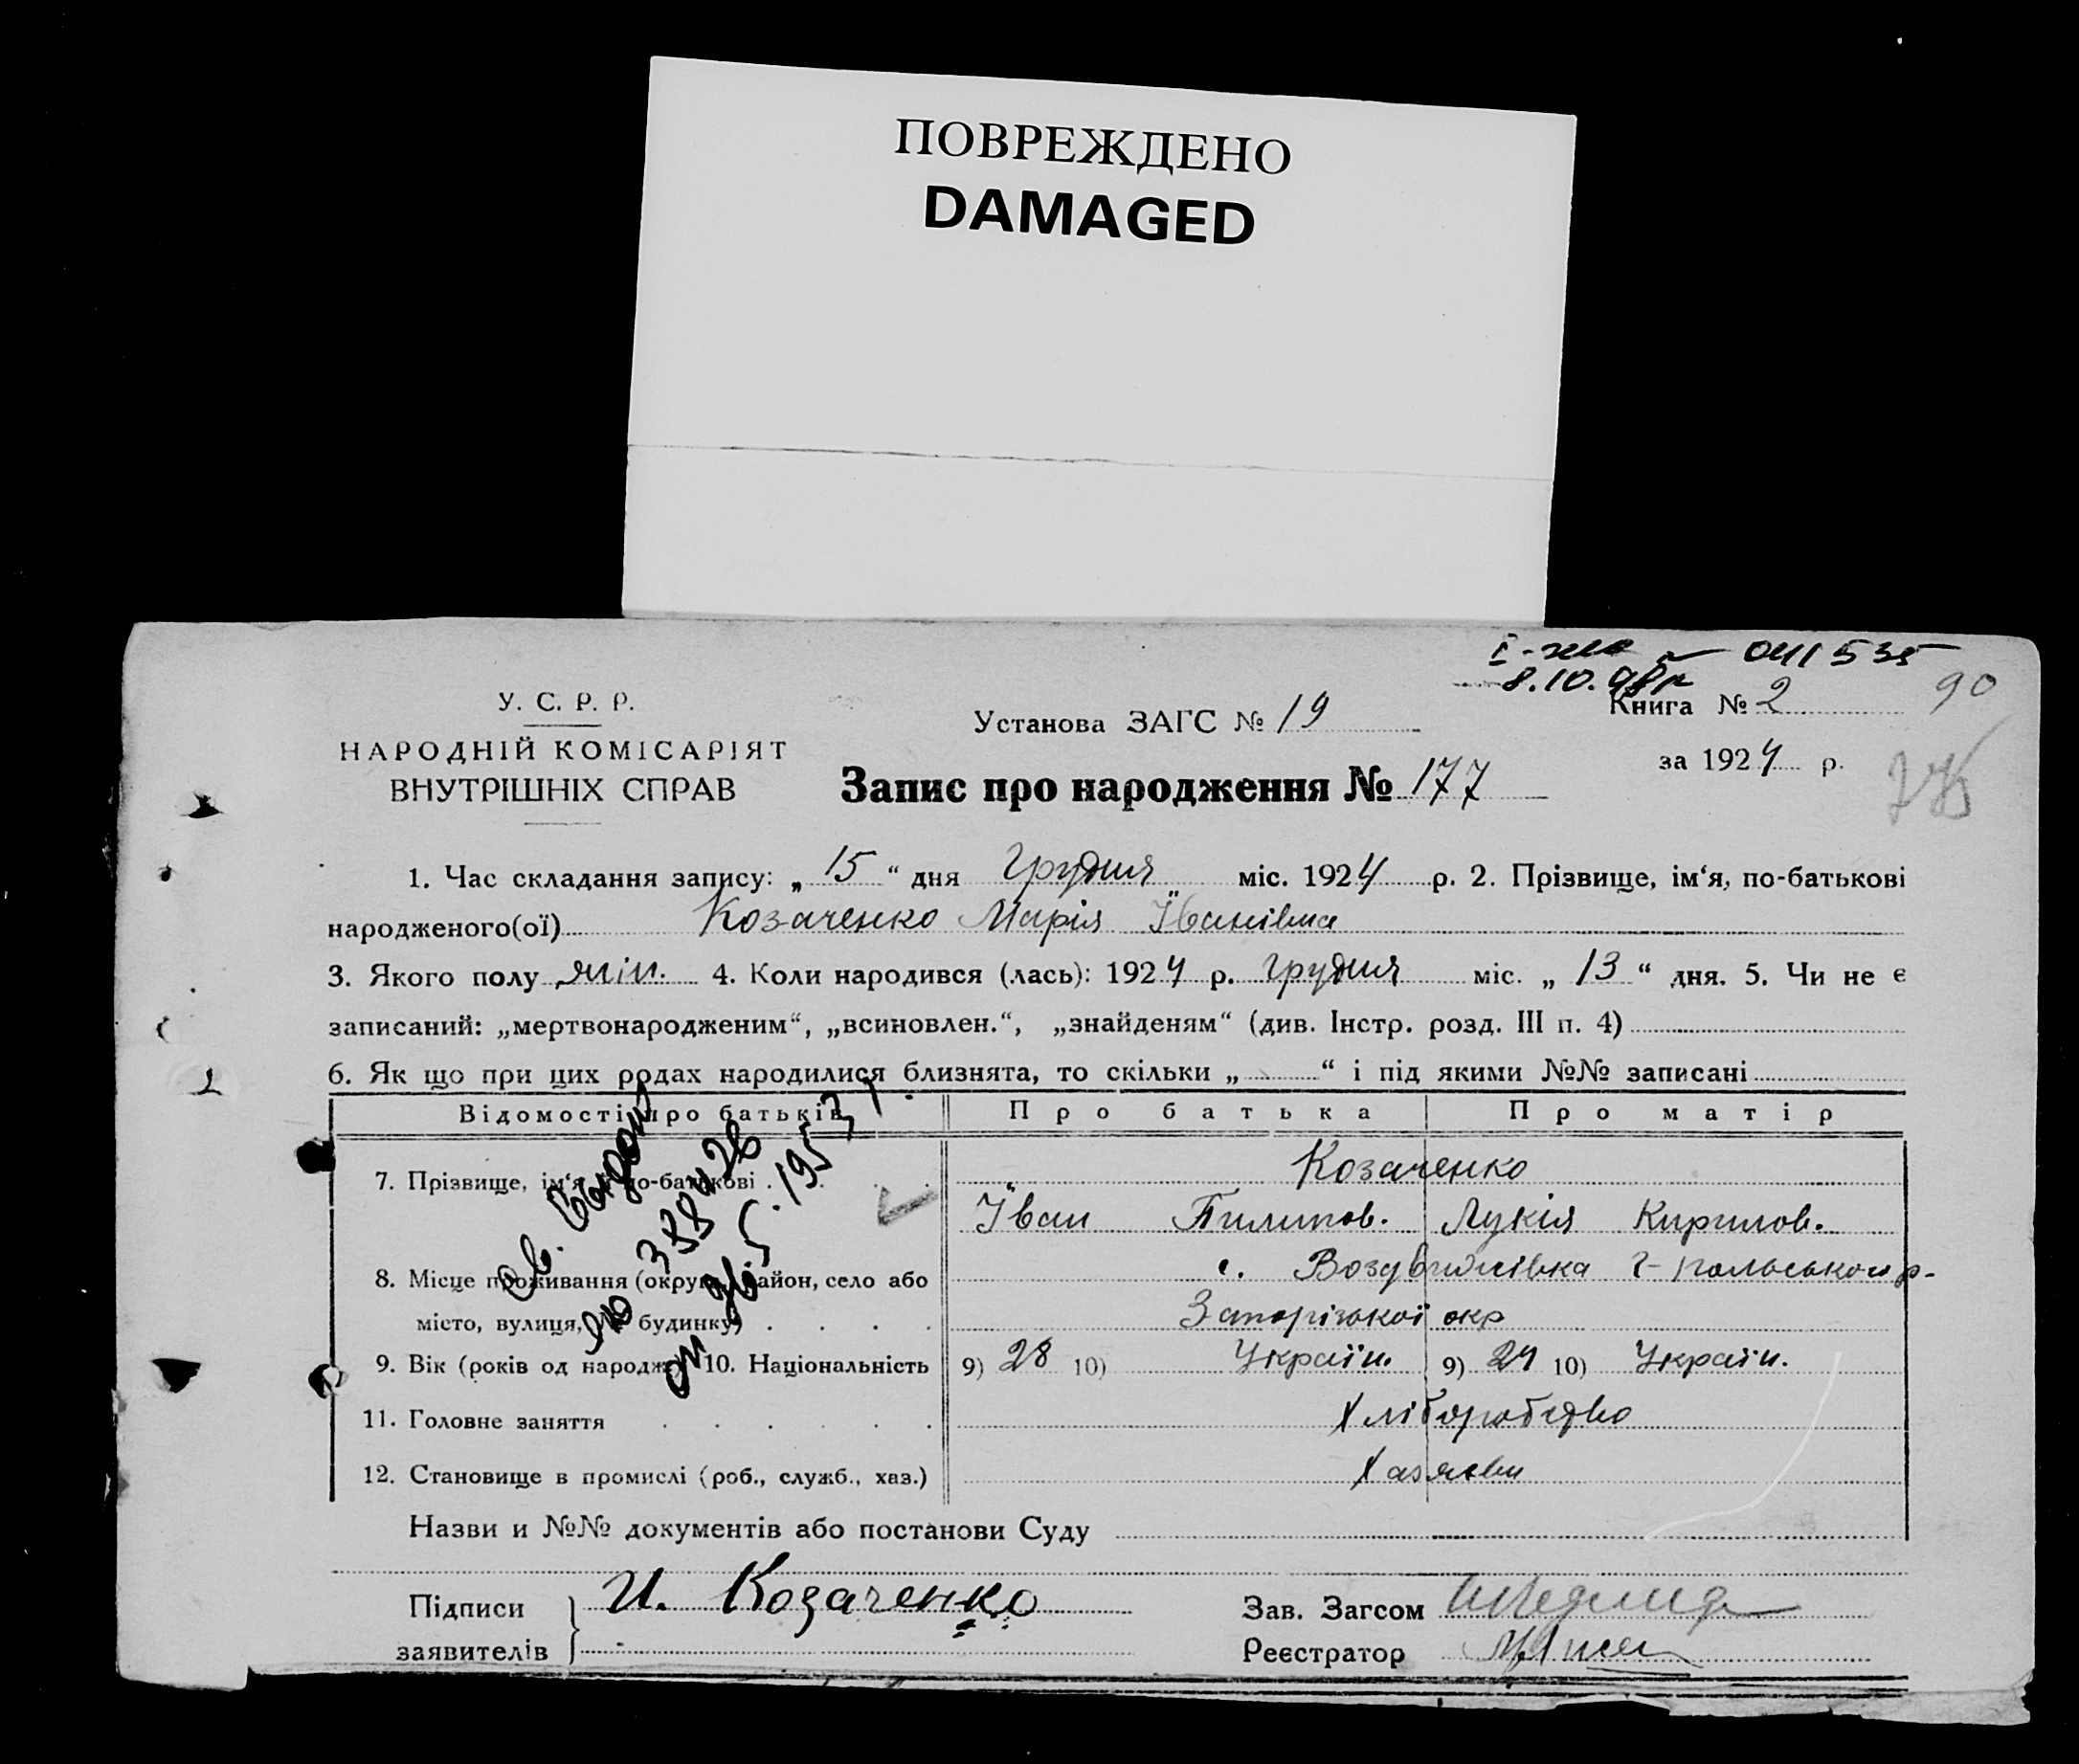 ПОВРЕЖДЕНО
DAMAGED
041535
8.10.98р
90
У. С. Р. Р.
НАРОДНІЙ КОМІСАРІЯТ
ВНУТРІШНІХ СПРАВ
Установа ЗАГС № 19
Книга № 2
за 1924 р.
Запис про народження № 177
1. Час складання запису: „ 15 “ дня Грудня міс. 1924 р. 2. Прізвище, ім‘я, по-батькові
народженого(ої) Козаченко Марія Іванівна
3. Якого полу жін. 4. Коли народився (лась): 1924 р. Грудня міс. „ 13 “ дня. 5. Чи не є
записаний: „мертвонародженим“, „всиновлен.“, „знайденям“ (див. Інстр. розд. III п. 4)
6. Як що при цих родах народилися близнята, то скільки „ “ і під якими №№ записані
Відомості про батьків Про батька Про матір
7. Прізвище, ім‘я по-батькові Козаченко
Іван Пилипов. Лукія Кирилов.
8. Місце проживання (округа, район, село або с. Воздвижівка Г-польського р-
місто, вулиця, № будинку) Запорізької окр
9. Вік (років од народж.) 10. Національність 9) 28 10) Україн. 9) 24 10) Україн.
11. Головне заняття Хліборобство
12. Становище в промислі (роб., служб., хаз.) Хазяєви
Св. выдано
ЯЮ 338426
от 26.5.1953 г.
Назви и №№ документів або постанови Суду
Підписи
заявителів
И. Козаченко
Зав. Загсом
Реєстратор